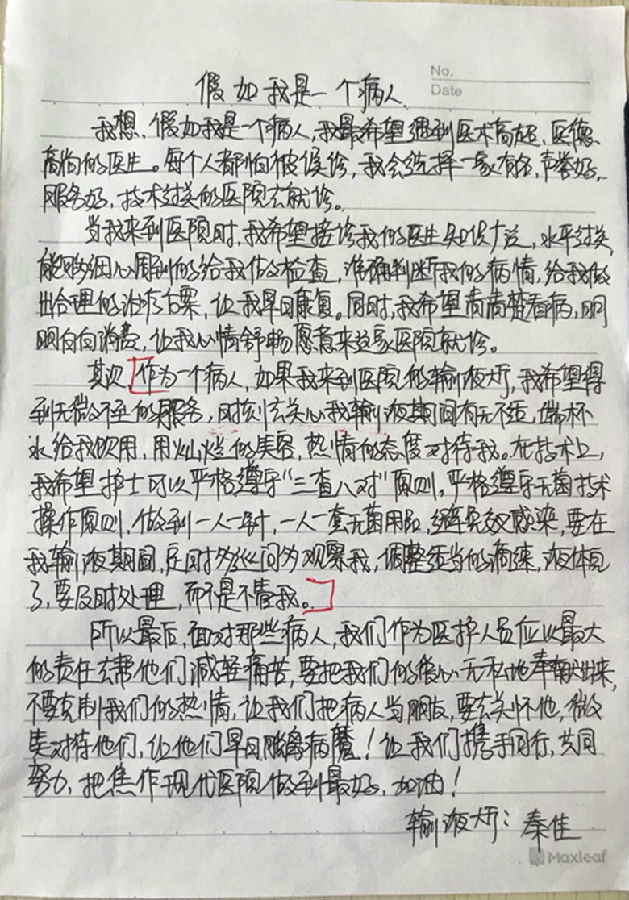 No.
Date
假如我是一个病人
我想,假如我是一个病人,我最希望遇到医术高超、医德
高尚的医生。每个人都怕被误诊,我会选择一家有名,声誉好,
服务好,技术过关的医院去就诊。
当我来到医院时,我希望接诊我的医生知识广泛,水平过关,
能够细心周到的给我做检查,准确判断我的病情,给我做
出合理的治疗方案,让我早日康复。同时,我希望清清楚楚看病,明
明白白消费,让我心情舒畅愿意来这家医院就诊。
其次作为一个病人,如果我来到医院的输液大厅,我希望得
到无微不至的服务,时刻去关心我输液期间有无不适,端杯
水给我饮用,用灿烂的笑容,热情的态度对待我。在技术上,
我希望护士可以严格遵守“三查八对”原则,严格遵守无菌技术
操作原则,做到一人一针,一人一套无菌用品,避免交叉感染,要在
我输液期间,定时为巡回为观察我,调整适当的滴速,液体完
了,要及时处理,而不是不管我。
所以最后,面对那些病人,我们作为医护人员应以最大
的责任去帮他们减轻痛苦,要把我们的爱心无私地奉献出来,
不要克制我们的热情,让我们把病人当朋友,要去关怀他,微
笑对待他们,让他们早日脱离病魔!让我们携手同行,共同
努力,把焦作现代医院做到最好,加油!
输液大厅:秦佳
Maxleaf